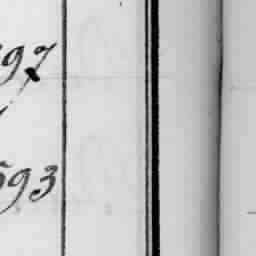 97
593